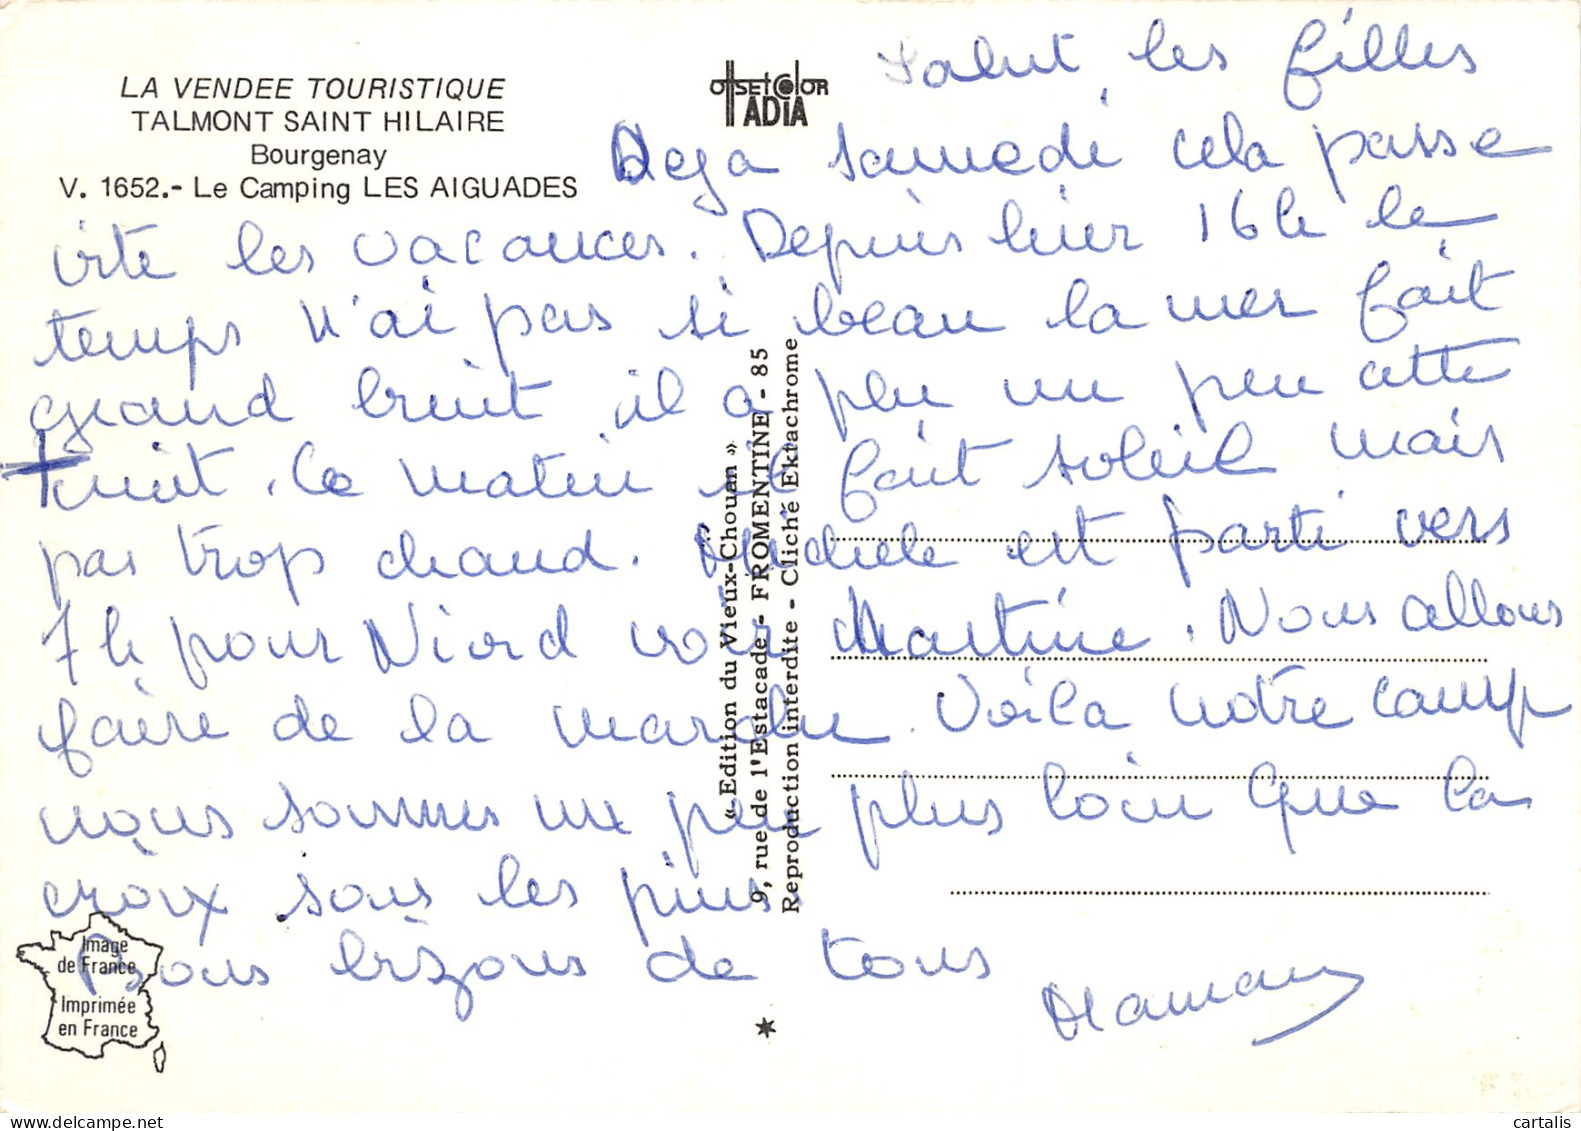 LA VENDEE TOURISTIQUE
TALMONT SAINT HILAIRE
Bourgenay
V. 1652.- Le Camping LES AIGUADES
OffsetColor
IADIA
Salut les filles
Deja samedi cela passe
vite les vacances. Depuis hier 16h le
temps n'ai pas si beau la mer fait
grand bruit il a plu un peu cette
nuit. Ce matin il fait soleil mais
pas trop chaud. Michele est parti vers
7h pour Niord voir Martine. Nous allons
faire de la marche. Voila notre camp
nous sommes un peu plus loin que la
croix sous les pins
Bons bizous de tous
Maman
« Edition du Vieux-Chouan »
9, rue de l'Estacade - FROMENTINE - 85
Reproduction interdite - Cliché Ektachrome
Image
de France
Imprimée
en France
cartalis
www.delcampe.net